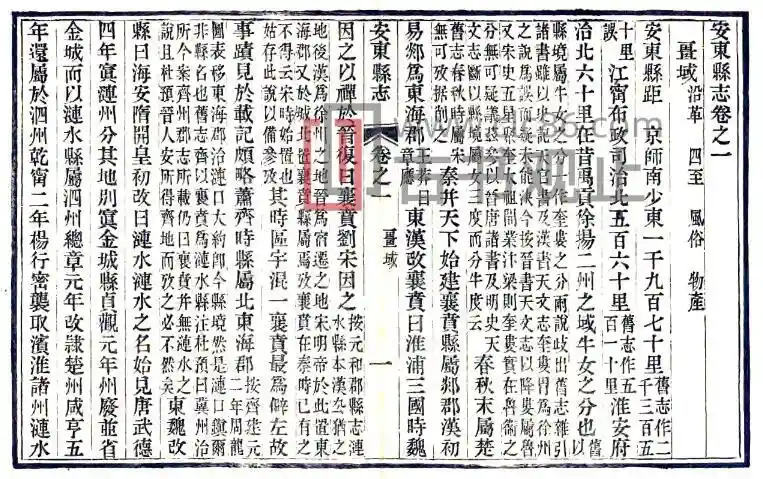 安東縣志卷之一
畺域 沿革 四至 風俗 物產
安東縣距 京師南少東一千九百七十里舊志作二千三百五
十里誤 江甯布政司治北五百六十里舊志作五百一十里 淮安府
治北六十里在昔禹貢徐揚二州之域牛女之分也舊以
縣境屬牛女之分一作奎婁之分兩說歧出舊志雜引
諸書雖以史記天官書及漢書天文志奎婁胃為徐州
之說為誤而疑未能決今按晉書天文志以降婁屬魯
又宋史五星聚奎太祖開業汴梁則奎婁實在魯衞之
分無可疑議茲以晉唐諸書及明史天
文志斷以縣境屬女三度而分牛度云 春秋末屬楚
舊志春秋時屬宋
無可攷據削之 秦并天下始建襄賁縣屬郯郡漢初
易郯為東海郡王莽曰章信 東漢改襄賁曰淮浦三國時魏
安東縣志 卷之一 畺域 一
因之以禪於晉復曰襄賁劉宋因之按元和郡縣志漣
水縣本漢厹猶之
地後漢為徐州之地晉為宿遷之地宋明帝於此置東
海郡又於城北置襄賁縣屬焉攷襄賁在泰時已有之
不得云宋時始置也
姑存此說以備參攷 其時區宇混一襄賁最為僻左故
事蹟見於載記頗略蕭齊時縣屬北東海郡按齊建元
二年周龍
圖表移東海郡治漣口大約即今縣境然是漣口鎮爾
非縣名也舊志齊以襄賁為漣水縣注杜預曰冀州治
所今案齊州郡志所載仍曰襄賁并無漣水之
說且杜預晉人安所得齊地而攷之必不然矣 東魏改
縣曰海安隋開皇初改曰漣水漣水之名始見唐武德
四年寘漣州分其地別寘金城縣貞觀元年州廢並省
金城而以漣水縣屬泗州總章元年改隸楚州咸亨五
年還屬於泗州乾甯二年楊行密襲取濱淮諸州漣水